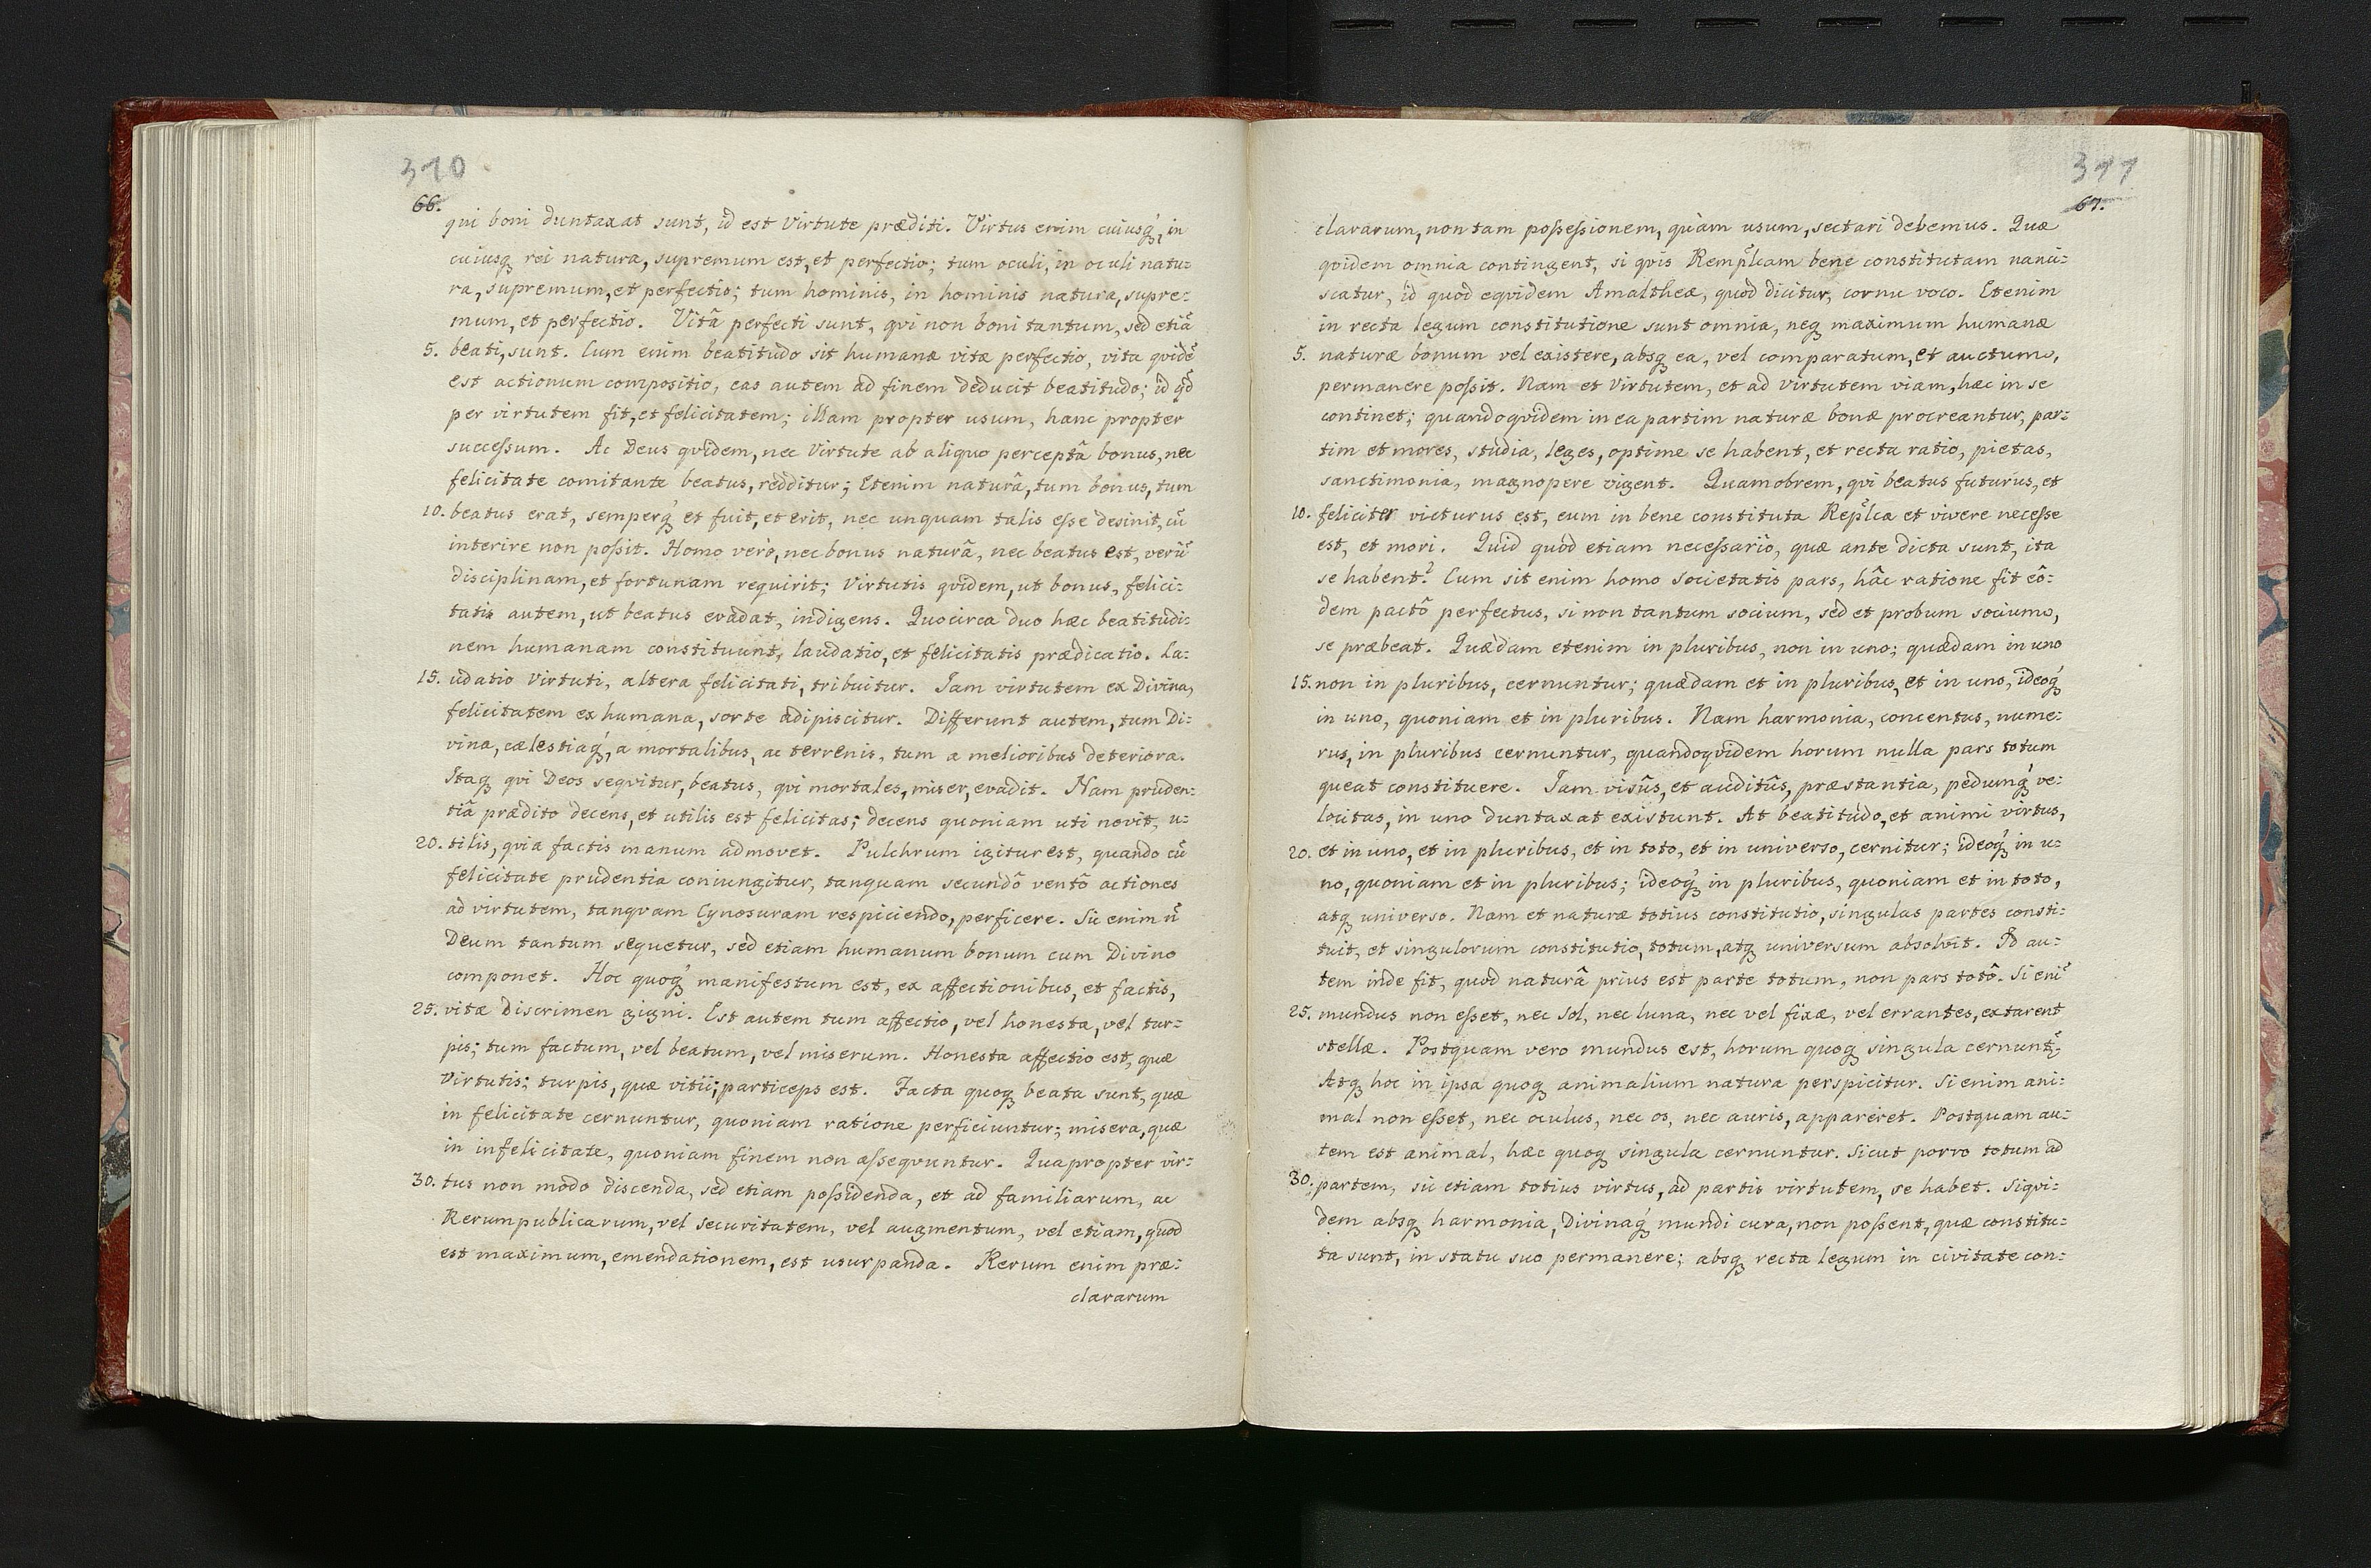 310
66.
qui boni duntaxat sunt, id est Virtute præditi. Virtus enim cuiusq́, in
cuiusq rei natura, supremum est, et perfectio; tum oculi, in oculi natu:
ra, supremum, et perfectio; tum hominis, in hominis natura, supre:
mum, et perfectio. Vitâ perfecti sunt, qvi non boni tantum, sed etiã
5. beati, sunt. Cum enim beatitudo sit humanæ vitæ perfectio, vita qvidẽ
est actionum compositio, eas autem ad finem deducit beatitudo; id qd̃
per virtutem fit, et felicitatem; illam propter usum, hanc propter
succeſsum. Ac Deus qvidem, nec Virtute ab aliquo perceptâ bonus, nec
felicitate comitante beatus, redditur; Etenim naturâ, tum bonus, tum
10. beatus erat, semperq́ et fuit, et erit, nec unquam talis eſse desinit, cũ
interire non poſsit. Homo verò, nec bonus naturâ, nec beatus est, verũ
disciplinam, et fortunam requirit; Virtutis qvidem, ut bonus, felici:
tatis autem, ut beatus evadat, indigens. Quocirca duo hæc beatitudi:
nem humanam constituunt, laudatio, et felicitatis prædicatio. La:
15. udatio Virtuti, altera felicitati, tribuitur. Iam virtutem ex Divina,
felicitatem ex humana, sorte adipiscitur. Differunt autem, tum Di:
vina, cælestiaq́, a mortalibus, ac terrenis, tum a melioribus deteriora.
Itaq qvi Deos seqvitur, beatus, qvi mortales, miser, evadit. Nam pruden:
tiâ prædito decens, et utilis est felicitas; decens quoniam uti novit, u:
20. tilis, qvia factis manum admovet. Pulchrum igitur est, quando cũ
felicitate prudentia coniungitur, tanquam secundô ventô actiones
ad virtutem, tanqvam Cynosuram respiciendo, perficere. Sic enim ñ
Deum tantum sequetur, sed etiam humanum bonum cum Divino
componet. Hoc quoq́ manifestum est, ex affectionibus, et factis,
25. vitæ Discrimen gigni. Est autem tum affectio, vel honesta, vel tur:
pis; tum factum, vel beatum, vel miserum. Honesta affectio est, quæ
Virtutis; turpis, quæ vitii; particeps est. Facta quoq beata sunt, quæ
in felicitate cernuntur, quoniam ratione perficiuntur; misera, quæ
in infelicitate, quoniam finem non aſseqvuntur. Quapropter vir:
30. tus non modo discenda, sed etiam poſsidenda, et ad familiarum, ac
Rerumpublicarum, vel securitatem, vel augmentum, vel etiam, quod
est maximum, emendationem, est usurpanda. Rerum enim præ:
clararum
311
67.
clararum, non tam poſseſsionem, quàm usum, sectari debemus. Quæ
qvidem omnia contingent, si qvis Remp̃lcam bene constitutam nanci:
scatur, id quod eqvidem Amaltheæ, quod dicitur, cornu voco. Etenim
in recta legum constitutione sunt omnia, neq maximum humanæ
5. naturæ bonum vel existere, absq ea, vel comparatum, et auctum,
permanere poſsit. Nam et Virtutem, et ad virtutem viam, hæc in se
continet; quandoqvidem in ea partim naturæ bonæ procreantur, par:
tim et mores, studia, leges, optime se habent, et recta ratio, pietas,
sanctimonia, magnopere vigent. Quamobrem, qvi beatus futurus, et
10. feliciter victurus est, eum in bene constituta Rep̃lca et vivere neceſse
est, et mori. Quid quod etiam neceſsariò, quæ ante dicta sunt, ita
se habent? Cum sit enim homo societatis pars, hâc ratione fit eô:
dem pactô perfectus, si non tantum socium, sed et probum socium,
se præbeat. Quædam etenim in pluribus, non in uno; quædam in uno
15. non in pluribus, cernuntur; quædam et in pluribus, et in uno, ideoq́
in uno, quoniam et in pluribus. Nam harmonia, concentus, nume:
rus, in pluribus cernuntur, quandoqvidem horum nulla pars totum
queat constituere. Iam visûs, et auditûs, præstantia, pedumq́ ve:
locitas, in uno duntaxat existunt. At beatitudo, et animi virtus,
20. et in uno, et in pluribus, et in toto, et in universo, cernitur; ideoq́ in u:
no, quoniam et in pluribus; ideoq́ in pluribus, quoniam et in toto,
atq universo. Nam et naturæ totius constitutio, singulas partes consti:
tuit, et singulorum constitutio, totum, atq universum absolvit. Id au:
tem inde fit, quod naturâ prius est parte totum, non pars totô. Si enĩ
25. mundus non eſset, nec sol, nec luna, nec vel fixæ, vel errantes, extarent
stellæ. Postquam vero mundus est, horum quoq singula cernunt̃.
Atq hoc in ipsa quoq animalium natura perspicitur. Si enim ani:
mal non eſset, nec oculus, nec os, nec auris, appareret. Postquam au:
tem est animal, hæc quoq singula cernuntur. Sicut porro totum ad
30. partem, sic etiam totius virtus, ad partis virtutem, se habet. Siqvi:
dem absq harmonia, Divinaq́ mundi cura, non poſsent, quæ constitu:
ta sunt, in statu suo permanere; absq recta legum in civitate con: